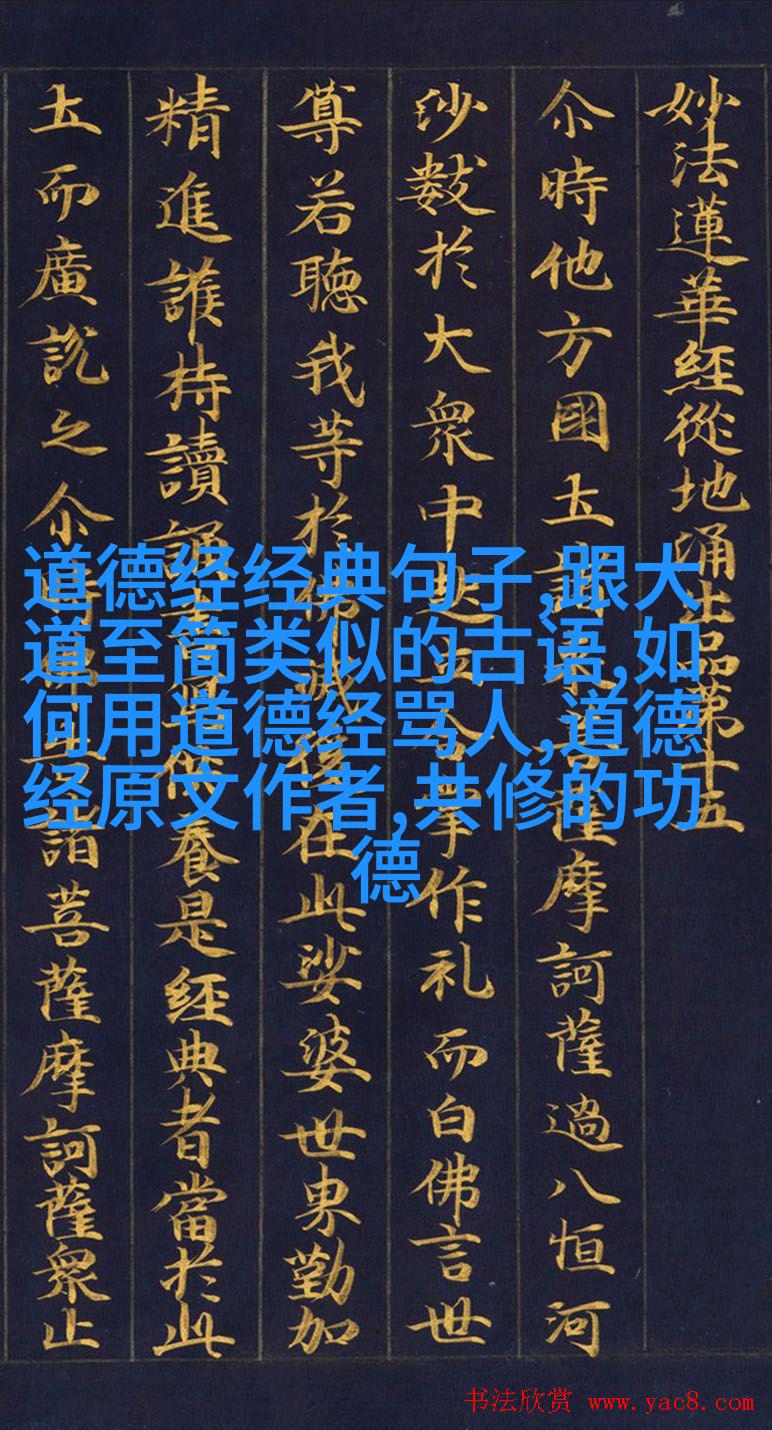 妙法蓮華經從地涌出品第十五
尒時他方國土諸來菩薩摩訶薩過八恒河
沙數於大衆中起立合掌作礼而白佛言世
尊若聽我等於佛滅後在此娑婆世界勤加
精進護持讀誦供養是經典者當於此
土而廣說之尒時佛告諸菩薩摩訶薩衆止
道德经经典句子,跟大
道至简类似的古语,如
何用道德经骂人,道德
经原文作者,共修的功
德
书法欣赏 www.yac8.com